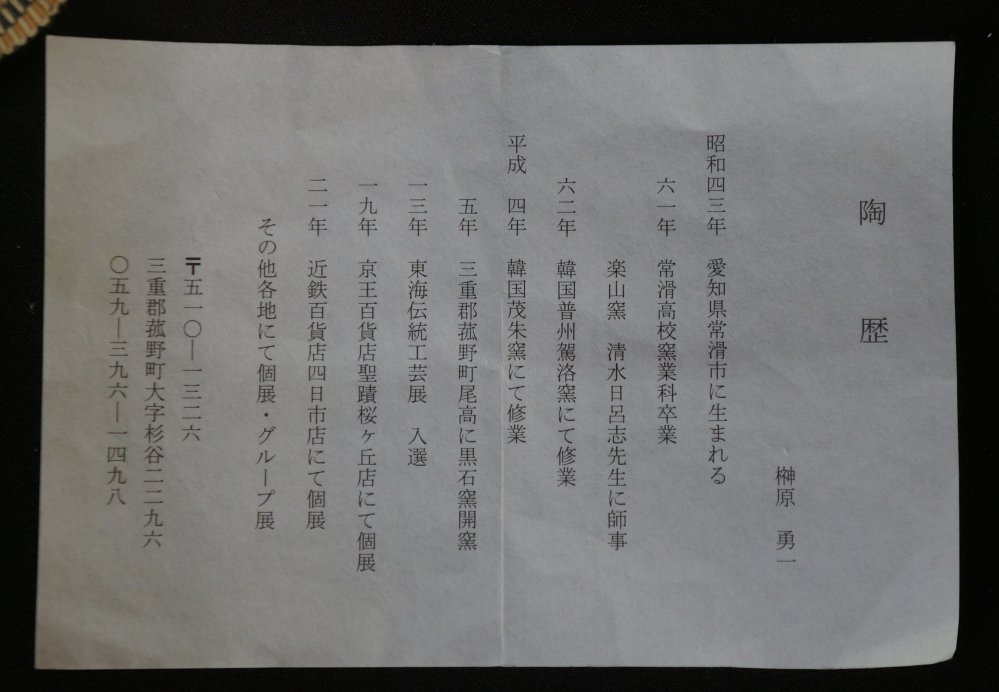 陶歴
榊原 勇一
昭和四三年 愛知県常滑市に生まれる
六一年 常滑高校窯業科卒業
楽山窯 清水日呂志先生に師事
六二年 韓国普州駕洛窯にて修業
平成 四年 韓国茂朱窯にて修業
五年 三重郡菰野町尾高に黒石窯開窯
一三年 東海伝統工芸展 入選
一九年 京王百貨店聖蹟桜ヶ丘店にて個展
二一年 近鉄百貨店四日市店にて個展
その他各地にて個展・グループ展
〒五一〇―一三二六
三重郡菰野町大字杉谷二二九六
〇五九―三九六―一四九八